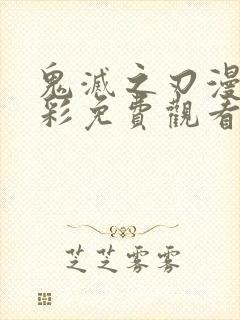 鬼滅之刃漫
彩免費觀看
芝芝雾雾